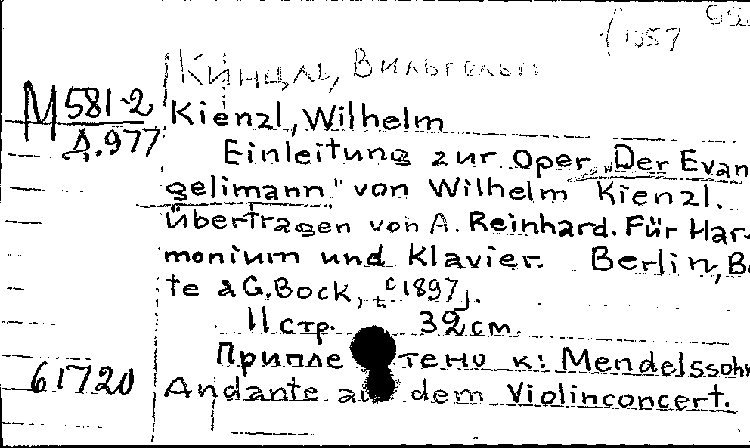 Кинцль, Вильгельм
М 581-2
Д.977
Kienzl, Wilhelm
Einleitung zur Oper „Der Evan-
gelimann" von Wilhelm Kienzl.
Übertragen von A. Reinhard. Für Har-
monium und Klavier. Berlin, Bo
te & G. Bock, [c 1897].
11 стр. 32 cm.
Припле тено к: Mendelssohn
61720
Andante a dem Violinconcert.